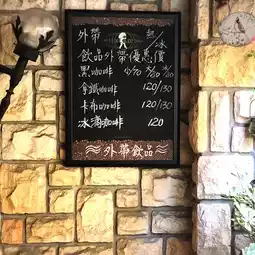 外帶 熱/冰
飲品外帶優惠價
黑咖啡
拿鐵咖啡 120/130
卡布咖啡 120/130
冰滴咖啡 120
外帶飲品